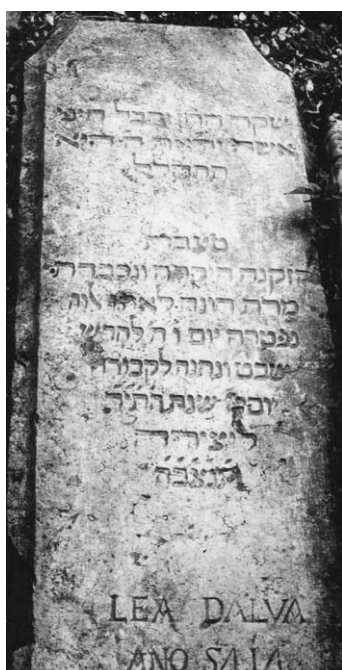 שקר החן והבל היפי
אשה יראת ה היא
תתהלל
מצבת
הזקנה היקרה ונכבדה
מרת
נפטרה יום ו ה לחדש
שבט ונתנה לקבורה
יום שנת
ליצירה
תנצבה
LEA DALVA
ANO SAIA